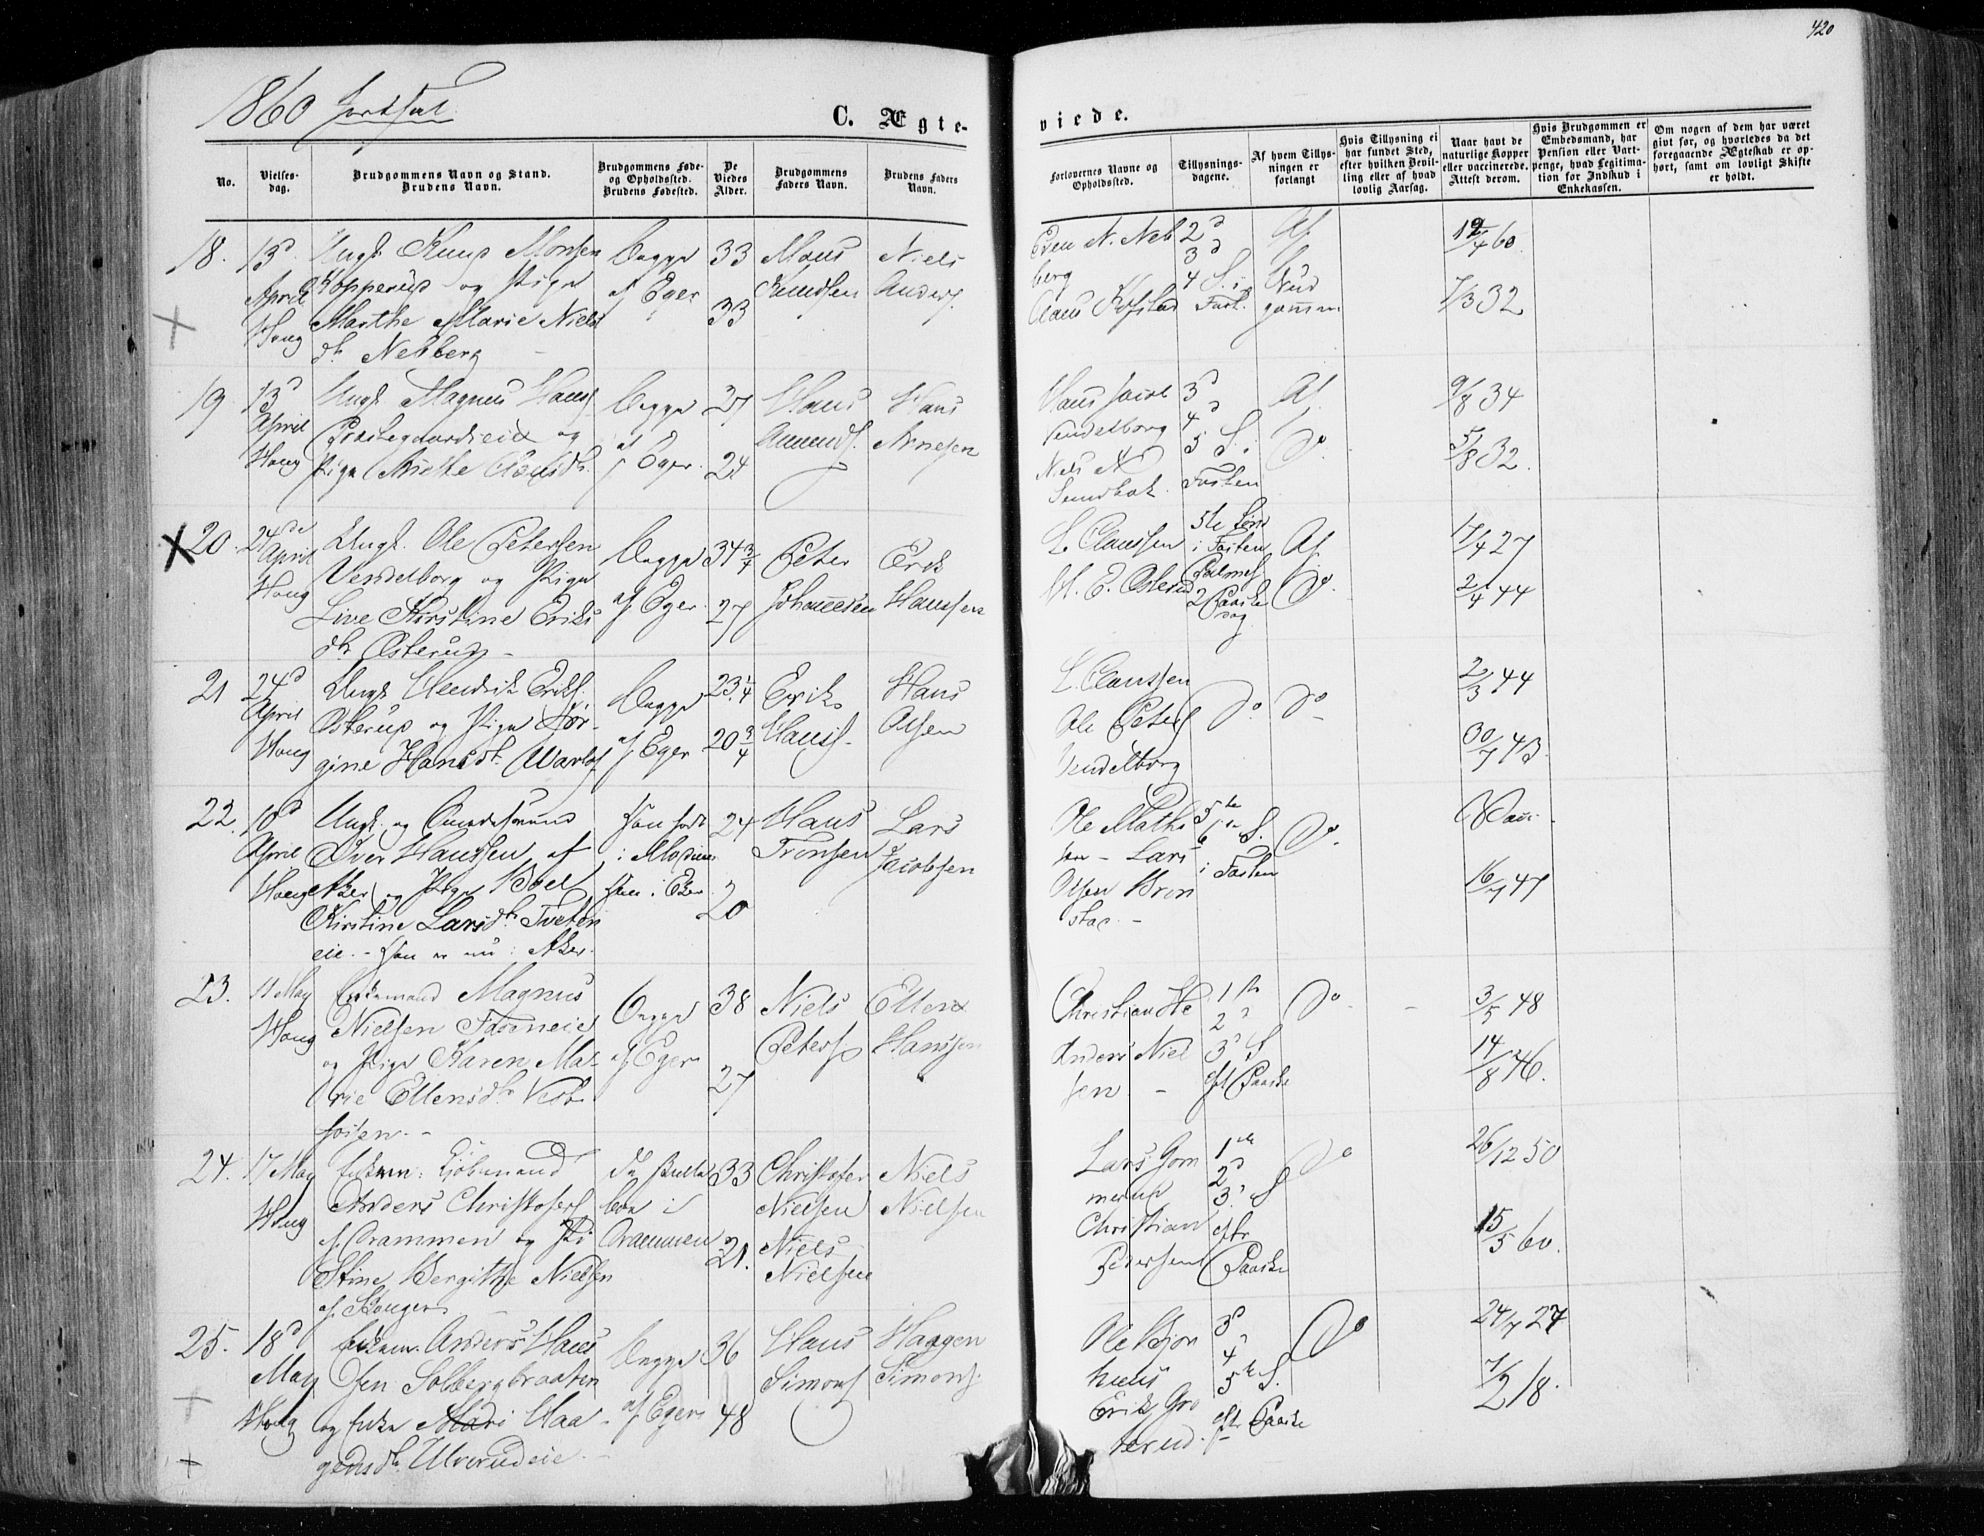 420
1860 Fortsat
C. Ægte-
viede.
No.
Vielses-
dag.
Brudgommens Navn og Stand.
Brudens Navn.
Brudgommens Føde-
og Opholdssted.
Brudens Fødested.
De
Viedes
Alder.
Brudgommens
Faders Navn.
Brudens Faders
Navn.
Forlovernes Navne og
Opholdssted.
Tillysnings-
dagene.
Af hvem Tillys-
ningen er
forlangt
Hvis Tillysning ei
har fundet Sted,
efter hvilken Bevil-
ling eller af hvad
lovlig Aarsag.
Naar havt de
naturlige Kopper
eller vaccinerede.
Attest derom.
Hvis Brudgommen er
Embedsmand, har
Pension eller Vart-
penge, hvad Legitima-
tion for Indskud i
Enkekassen.
Om nogen af dem har været
givt før, og hvorledes da det
foregaaende Ægteskab er op-
hørt, samt om lovligt Skifte
er holdt.
18.
13d
April
Houg
Ungk. Knud Monsen
Hopperud og Pige
Marthe Marie Niels
dtr. Nebberg
Begge
af Eger
33
33
Mons
Knudsen
Niels
Anders.
Even N. Neb
berg
Claus Kofstad
2d
3d
4 S. i
Fast.
Af
Brud
gommen
4 60.
7/3 32
19
13d
April
Houg
Ungk. Magnus Hans.
Præstegaardseie og
Pige Anethe Hansdtr.
Begge
af Eger.
27
24
Hans
Amunds.
Hans
Arnesen
Hans Jacob
Vendelborg
Niels N
Sundhok.
3d
4d
5 S. i
Fasten
Af
Do.
9/8 34
5/8 32.
20.
24de
April
Houg
Ungk. Ole Petersen
Vendelborg og Pige
Live Kirstine Eriks
dtr. Østerud
Begge
af Eger.
34 3/4
27
Peter
Johannesen
Erik
Hansen
L. Claussen
H. E. Østerud
5te Sønd
i Fasten
Palmes.
2 Paaske
dag
Af
Do.
17/4 27
2/4 44
21
24d
April
Houg
Ungk. Hendrik Eriks.
Østerud og Pige Jør-
gine Hansdtr. Warlof
Begge
af Eger
23 1/4
20 3/4
Erik
Hans.
Hans
Olsen
L. Claussen
Ole Peters.
Vendelborg
Do
Do
2/3 44
30/7 43.
22.
10d
April
Houg
Ungk. og
Iver Hanssen af
Aker og Pige Boel
Kirstine Larsdtr. Tveten
eie. - Han er nu i Aker.
Han født
i Modum
Hun i Eker.
24
20
Hans
Tronsen
Lars
Jacobsen
Ole Mathi
sen - Lars
Olsen Bron
stad. -
5te
6te S.
i Fasten
Do.
16/7 47
23.
11 May
Houg
Enkemand Magnus
Nielsen Foseneie
og Pige Karen Ma-
rie Ellensdtr. Vest
fossen. -
Begge
af Eger
38
27
Niels
Peters.
Ellen
Hanssen
Christian He
Anders Niel
sen -
1ste
2d
3d S
eft. Paaske
Do
3/5 48
14/8 46.
24.
17 May
Houg
Enkem. Kjøbmand
Anders Christofers.
af Drammen og Pi
Stine Bergithe Nielsen
af Kongers
i
Drammen
33
21.
Christofer
Nielsen
Niels
Nielsen
Niels
Nielsen
Lars Gom
merud
Christian
Pedersen
1ste
2d
3d S
eftr
Paaske
Do
26/12 50
15/5 60.
25.
18d
May
Houg
Enkem. Anders Hans
sen Solbergbraaten
og Enke Mari Haa-
gensdtr. Ulverudeie. -
Begge
af Eger
36
48
Hans
Simons.
Haagen
Simons.
Ole Bjon
huus
Erik Gro
terud.
3d
4
5te S.
eftr Paaske
Do
24/7 27
7/2 18.